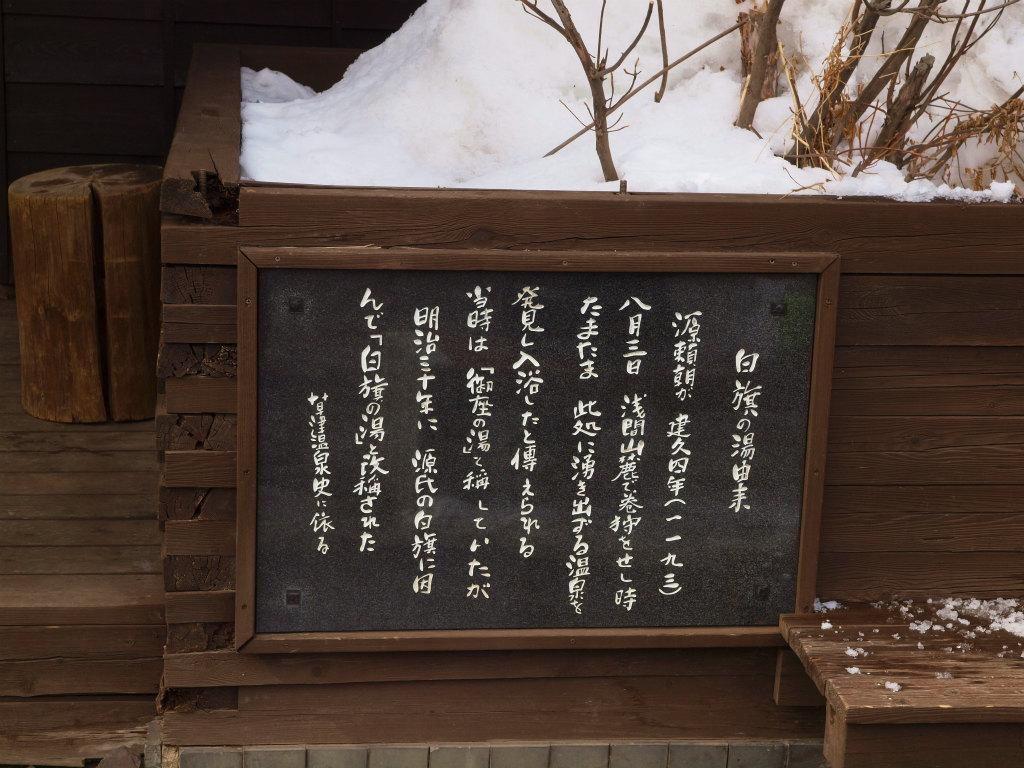 白旗の湯由来
源頼朝が 建久四年(一一九三)
八月三日 浅間山麓で巻狩をせし時
たまたま 此処に湧き出ずる温泉を
発見し入浴したと傳えられる
当時は「御座の湯」と稱していたが
明治三十年に 源氏の白旗に因
んで「白旗の湯」と改稱された
草津温泉史に依る